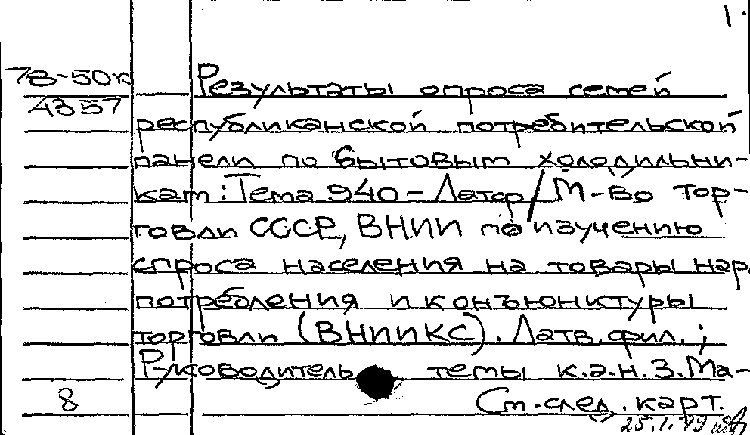 1.
78-50к
А337
Результаты опроса семей
республиканской потребительской
панели по бытовым холодильни-
кам: Тема 940-Латор/М-во тор-
говли СССР, ВНИИ по изучению
спроса населения на товары нар.
потребления и конъюнктуры
торговли (ВНИИКС). Латв. фил.;
Руководитель темы к.э.н. З. Ма-
8 См. след. карт.